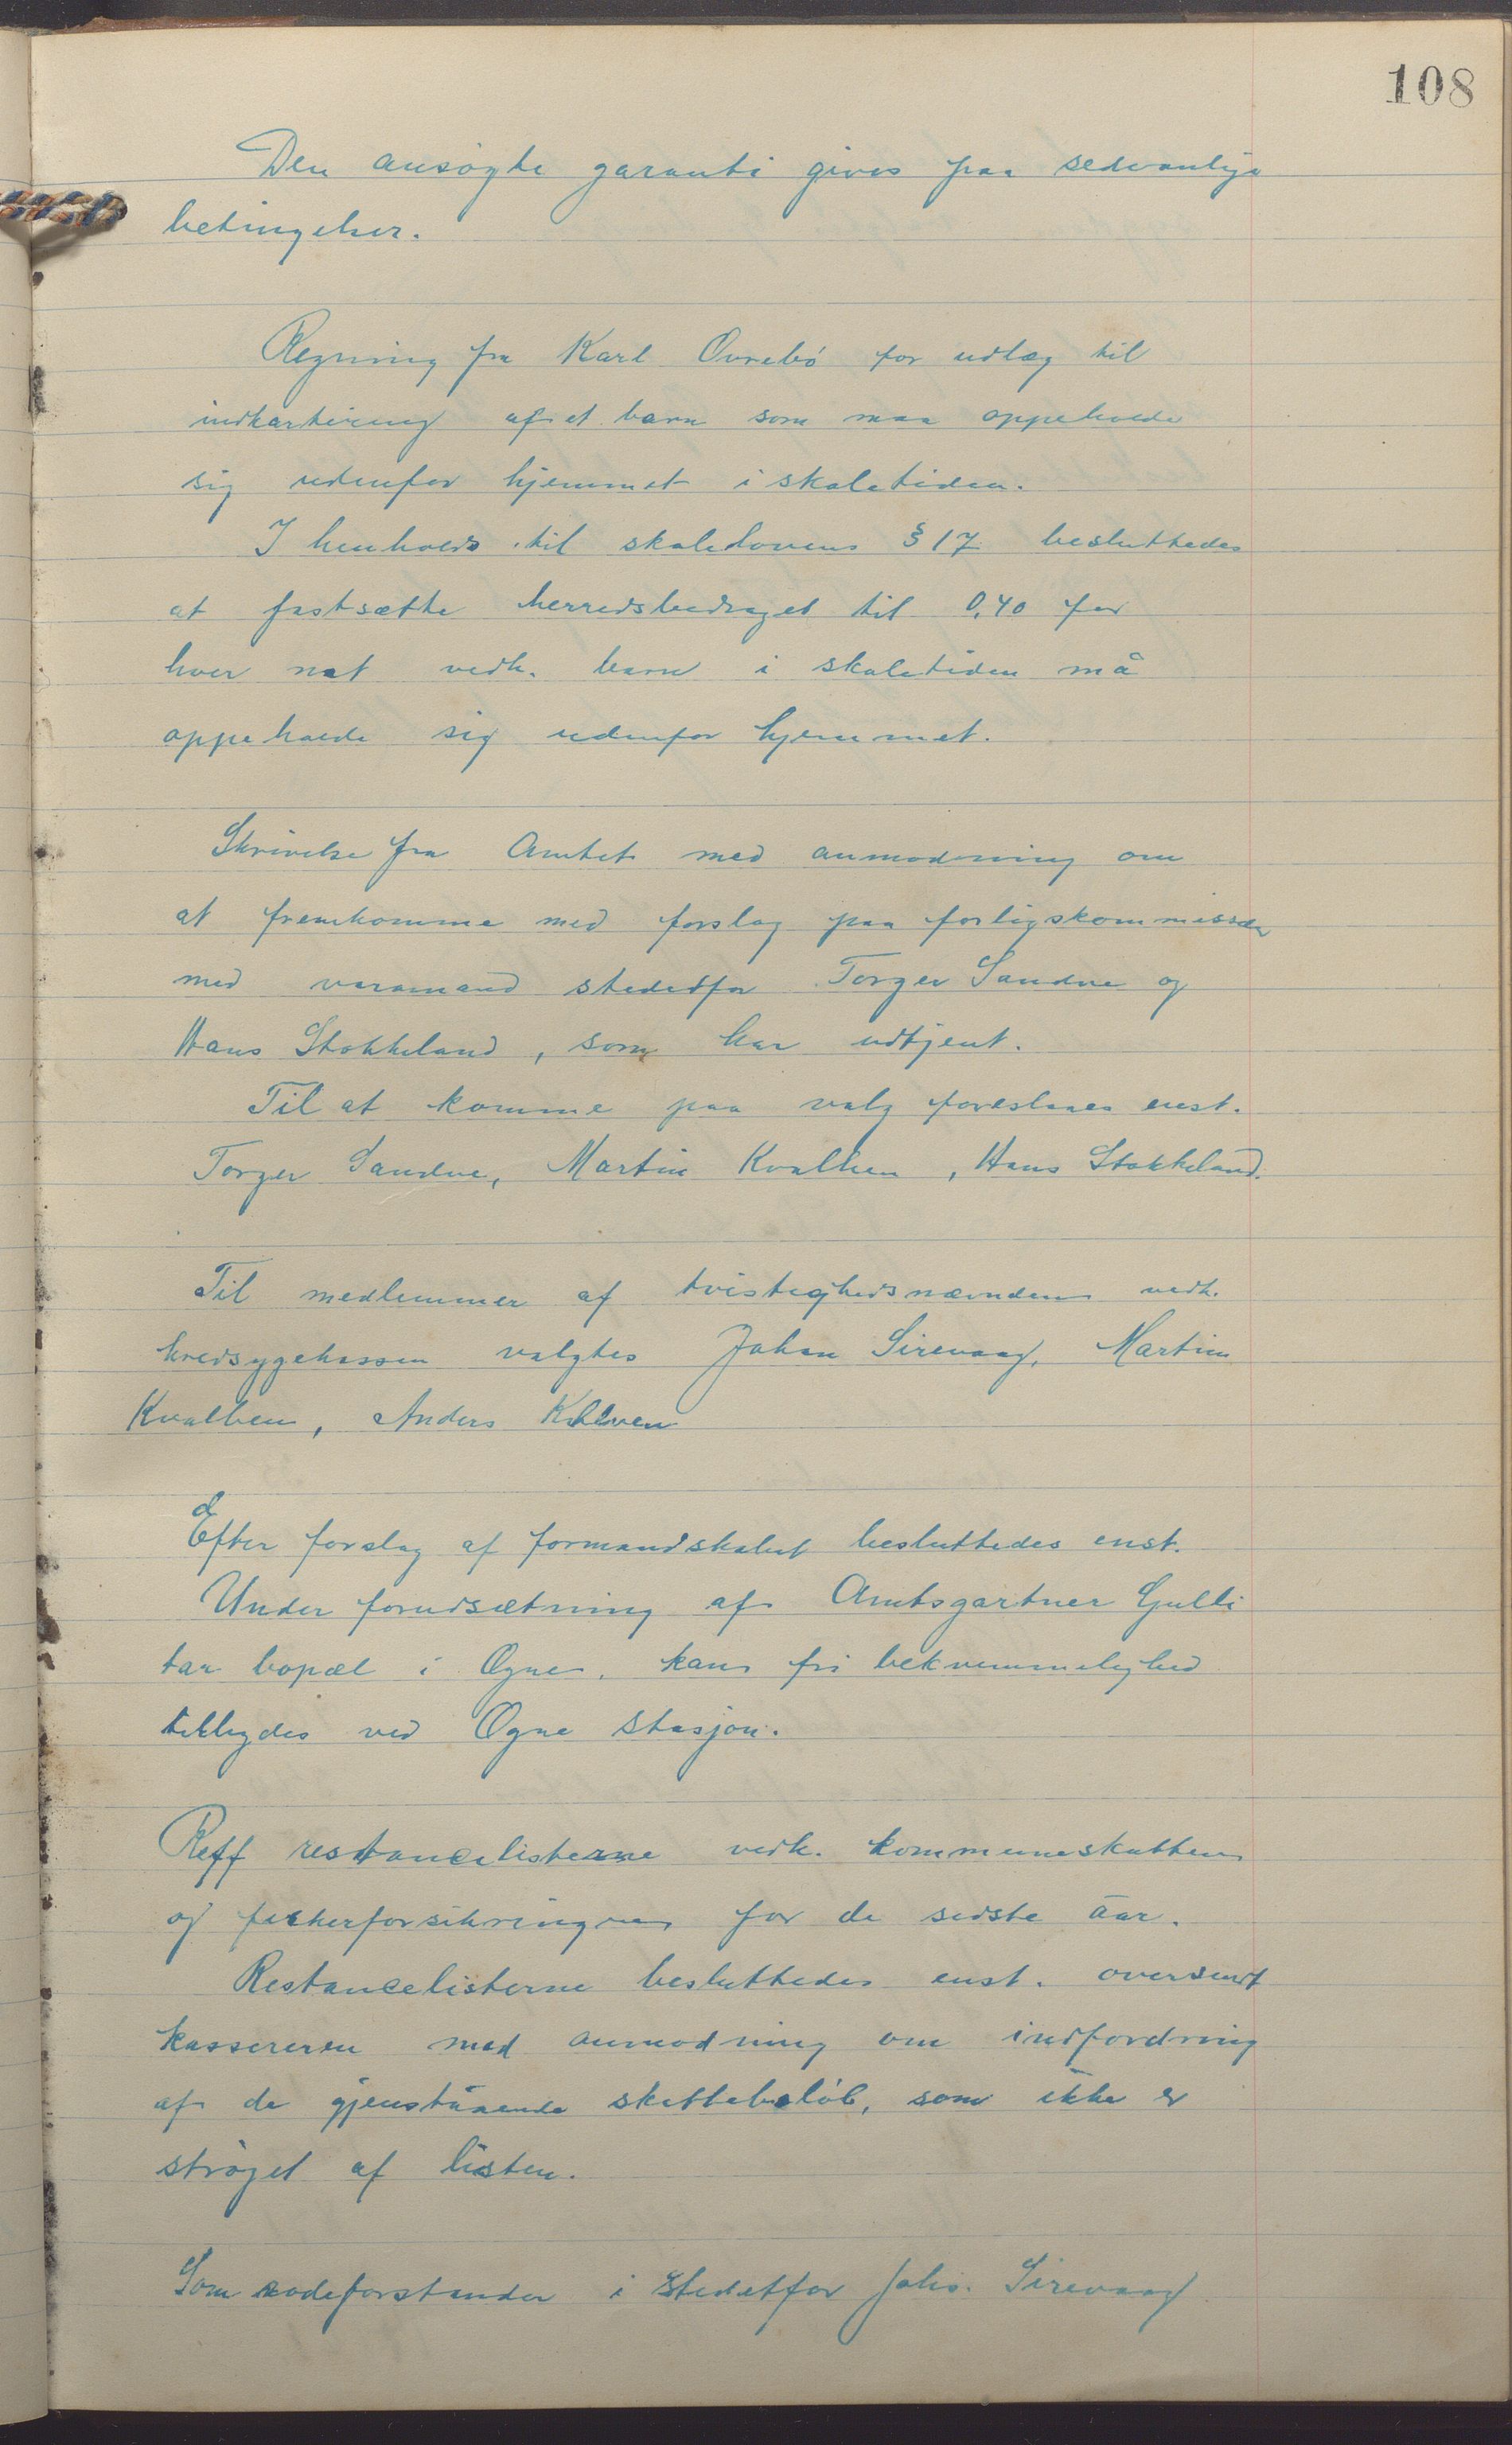 108
Den ansøgte garanti gives paa sedvanlige
betingelser.
Regning fra Karl Ovrebö for udlæg til
indkvartering af et barn som maa oppeholde
sig udenfor hjemmet i skoletiden.
I henhold til skolelovens § 17 besluttedes
at fastsætte herredsbidraget til 0,40 for
hver nat vedk. barn i skoletiden må
oppeholde sig udenfor hjemmet.
Skrivelse fra Amtet med anmodning om
at fremkomme med forslag paa forligskommissær
med varamand stedetfor Torger Sandve og
Hans Stokkeland, som har udtjent.
Til at komme paa valg foreslaaes enst.
Torger Sandve, Martin Kvalben, Hans Stokkeland.
Til medlemmer af tvistighedsnævnden vedk.
kredsygekassen valgtes Johan Sirevaag, Martin
Kvalben, Anders
Efter forslag af formandskabet besluttedes enst.
Under forudsætning af Amtsgartner Gulli
tar bopæl i Ogne, kan fri bekvemmelighed
tilbydes ved Ogne stasjon.
Reff restancelisterne vedk. kommuneskatten
og fiskerforsikringen for de sidste aar.
Restancelisterne besluttedes enst. oversendt
kassereren med anmodning om indfordring
af de gjenstaaende skattebeløb, som ikke er
strøget af listen.
Som rodeforstander i stedetfor Johs. Sirevaag